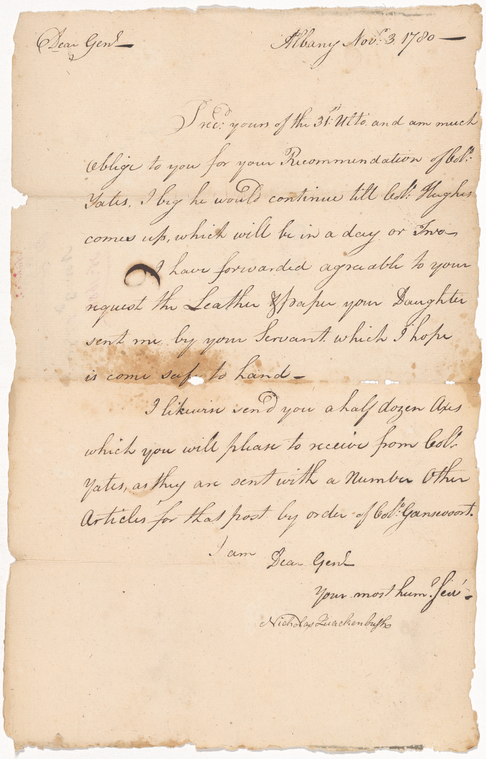 Dear Genl. Albany Novr. 3. 1780
I recd. yours of the 31st. Ulto. and am much
Oblige to you for your Recommendation of Col.
Yates, I beg he would continue till Col. Hughes
comes up, which will be in a day or Two
I have forwarded agreable to your
request the Leather & paper your Daughter
sent me by your Servant which I hope
is come safe to hand
I likewise send you a half dozen Axes
which you will please to receive from Col.
Yates, as they are sent with a Number Other
Articles for that post by order of Col. Gansevoort.
I am
Dear Genl.
Your most humb. Serv.
Nicholas Quackenbush